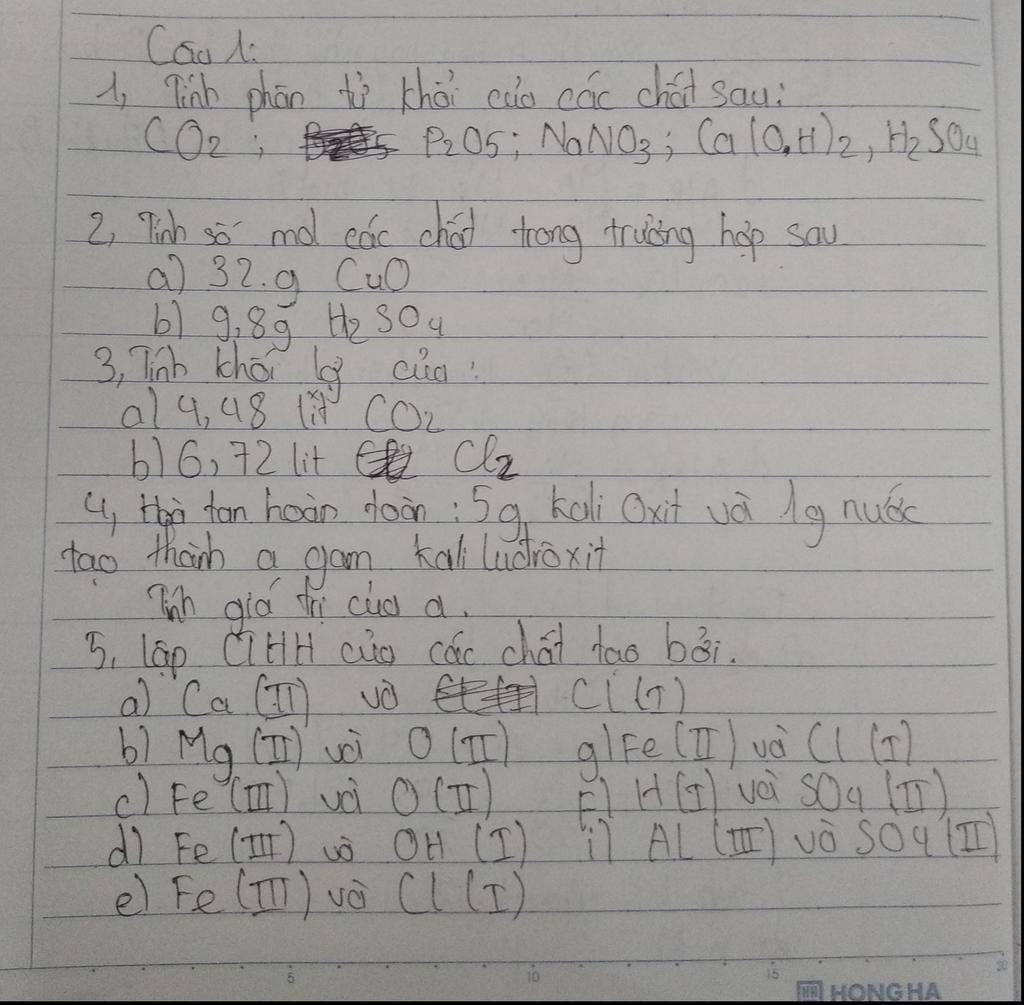 Câu 1:
1, Tính phân tử khối của các chất sau:
CO2; P2O5; NaNO3; Ca(OH)2, H2SO4
2, Tính số mol các chất trong trường hợp sau
a) 32.g CuO
b) 9,8g H2SO4
3, Tính khối lg của:
a) 4,48 lít CO2
b) 6,72 lit Cl2
4, Hoà tan hoàn toàn: 5g kali Oxit và 1g nước
tạo thành a gam kali
Tính giá trị của a.
5, lập CTHH của các chất tạo bởi.
a) Ca (II) và Cl (I)
b) Mg (II) và O (II) g) Fe (II) và Cl (I)
c) Fe (III) và O (II) F) H (I) và SO4 (II)
d) Fe (III) và OH (I) i) AL (III) và SO4 (II)
e) Fe (III) và Cl (I)
5 10 15 20
HH HONG HA